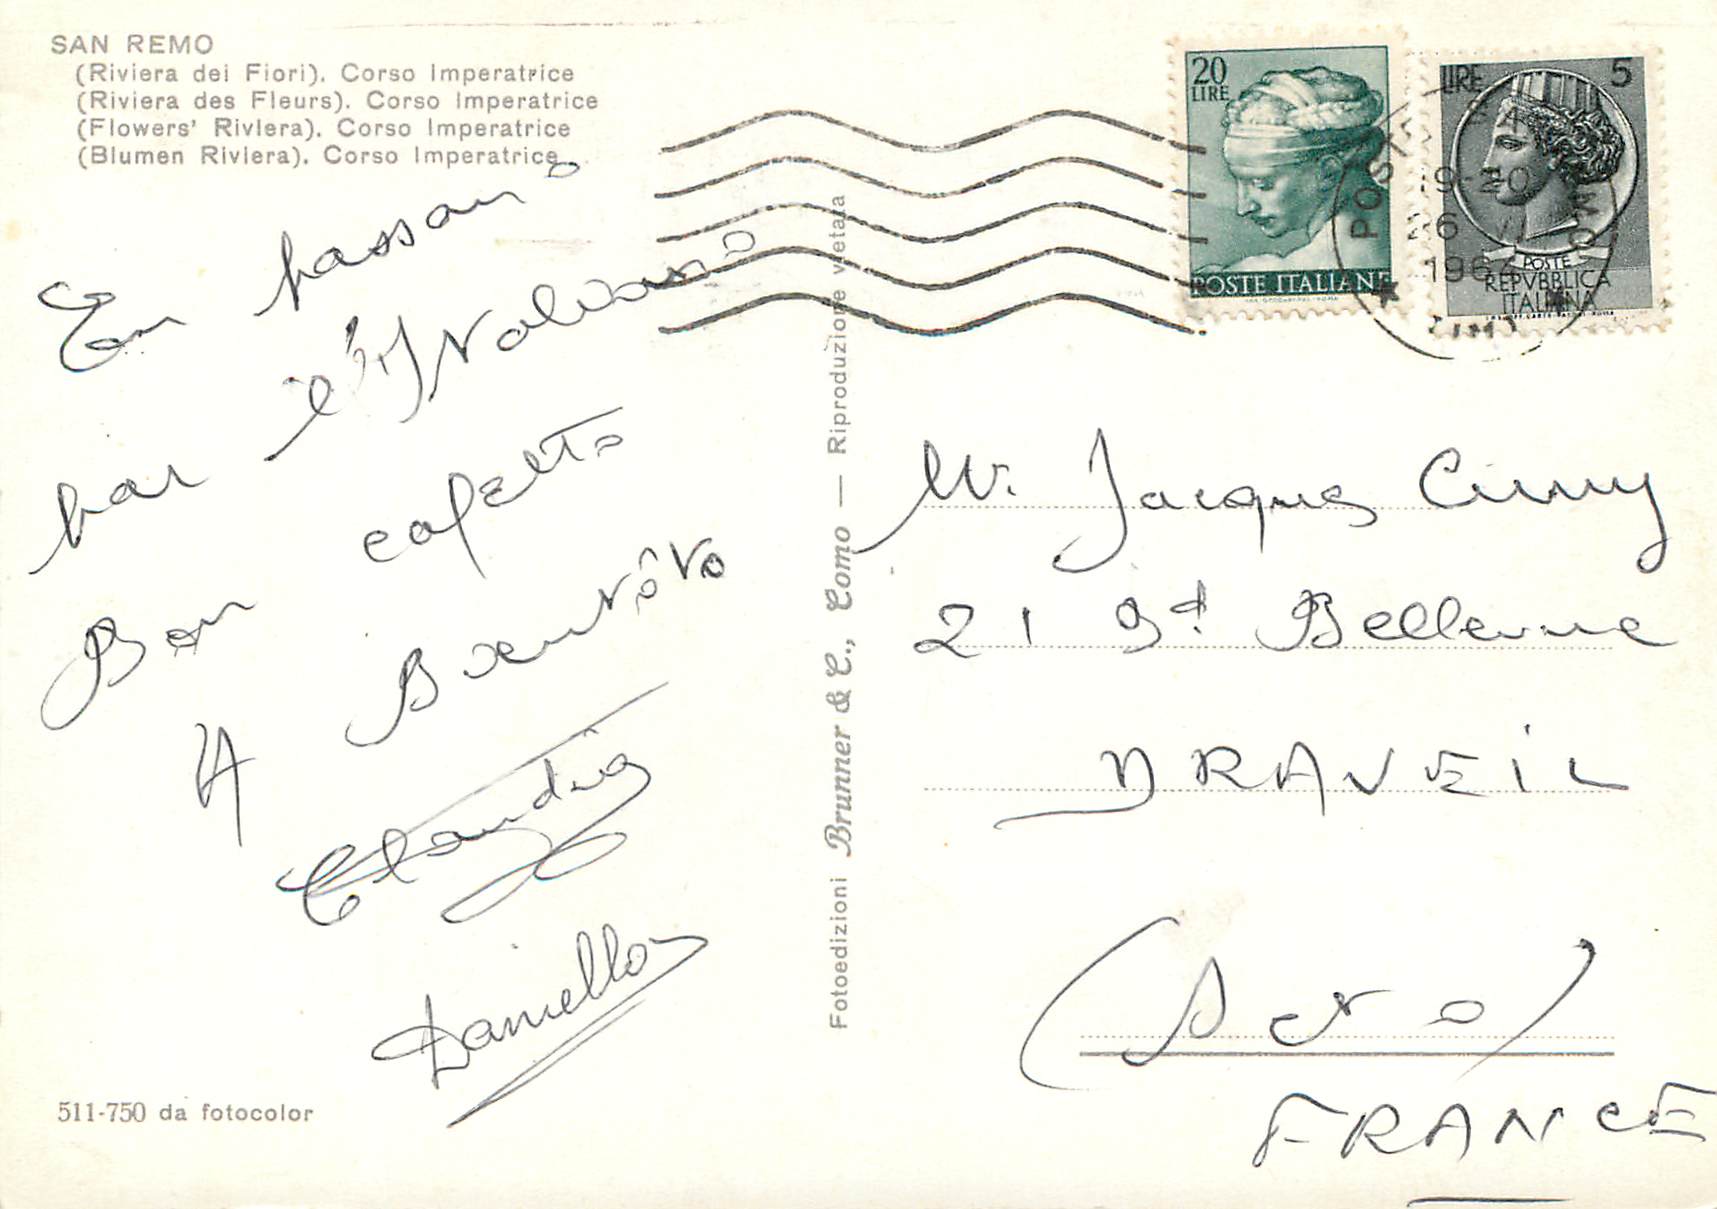 SAN REMO
(Riviera dei Fiori). Corso Imperatrice
(Riviera des Fleurs). Corso Imperatrice
(Flowers' Riviera). Corso Imperatrice
(Blumen Riviera). Corso Imperatrice
En passan
par
Bon
A Bientôto
Claudia
Daniella
511-750 da fotocolor
Fotoedizioni Brunner & C., Como — Riproduzione vietata
20
LIRE
POSTE ITALIANE
LIRE 5
POSTE
REPVBBLICA
ITALIANA
19-20
1964
Mr. Jacques
21 Bd. Bellevue
DRAVEIL
(S et O)
FRANCE